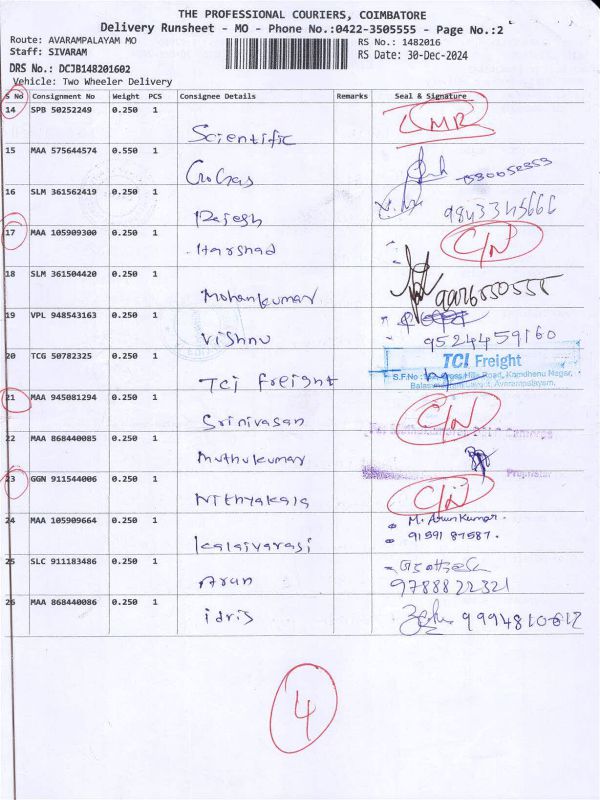 THE PROFESSIONAL COURIERS, COIMBATORE
Delivery Runsheet - MO - Phone No.:0422-3505555 - Page No.:2
Route: AVARAMPALAYAM MO
Staff: SIVARAM
RS No.: 1482016
RS Date: 30-Dec-2024
DRS No.: DCJB148201602
Vehicle: Two Wheeler Delivery
S No Consignment No Weight PCS Consignee Details Remarks Seal & Signature
14 SPB 50252249 0.250 1
Scientific
15 MAA 575644574 0.550 1
16 SLM 361562419 0.250 1
Rajesh
17 MAA 105909300 0.250 1 C/N
Harshad
18 SLM 361504420 0.250 1
Mohankumar
19 VPL 948543163 0.250 1
Vishnu 9524459160
20 TCG 50782325 0.250 1 TCI Freight
TCI Freight
21 MAA 945081294 0.250 1 C/N
Srinivasan
22 MAA 868440085 0.250 1
Muthukumar
Proprietor
23 GGN 911544006 0.250 1 C/N
Nithyakala
24 MAA 105909664 0.250 1 M. Arunkumar.
Kalaivarasi 91591 87587.
25 SLC 911183486 0.250 1
Arun 9788822321
26 MAA 868440086 0.250 1
idris 9994810612
4